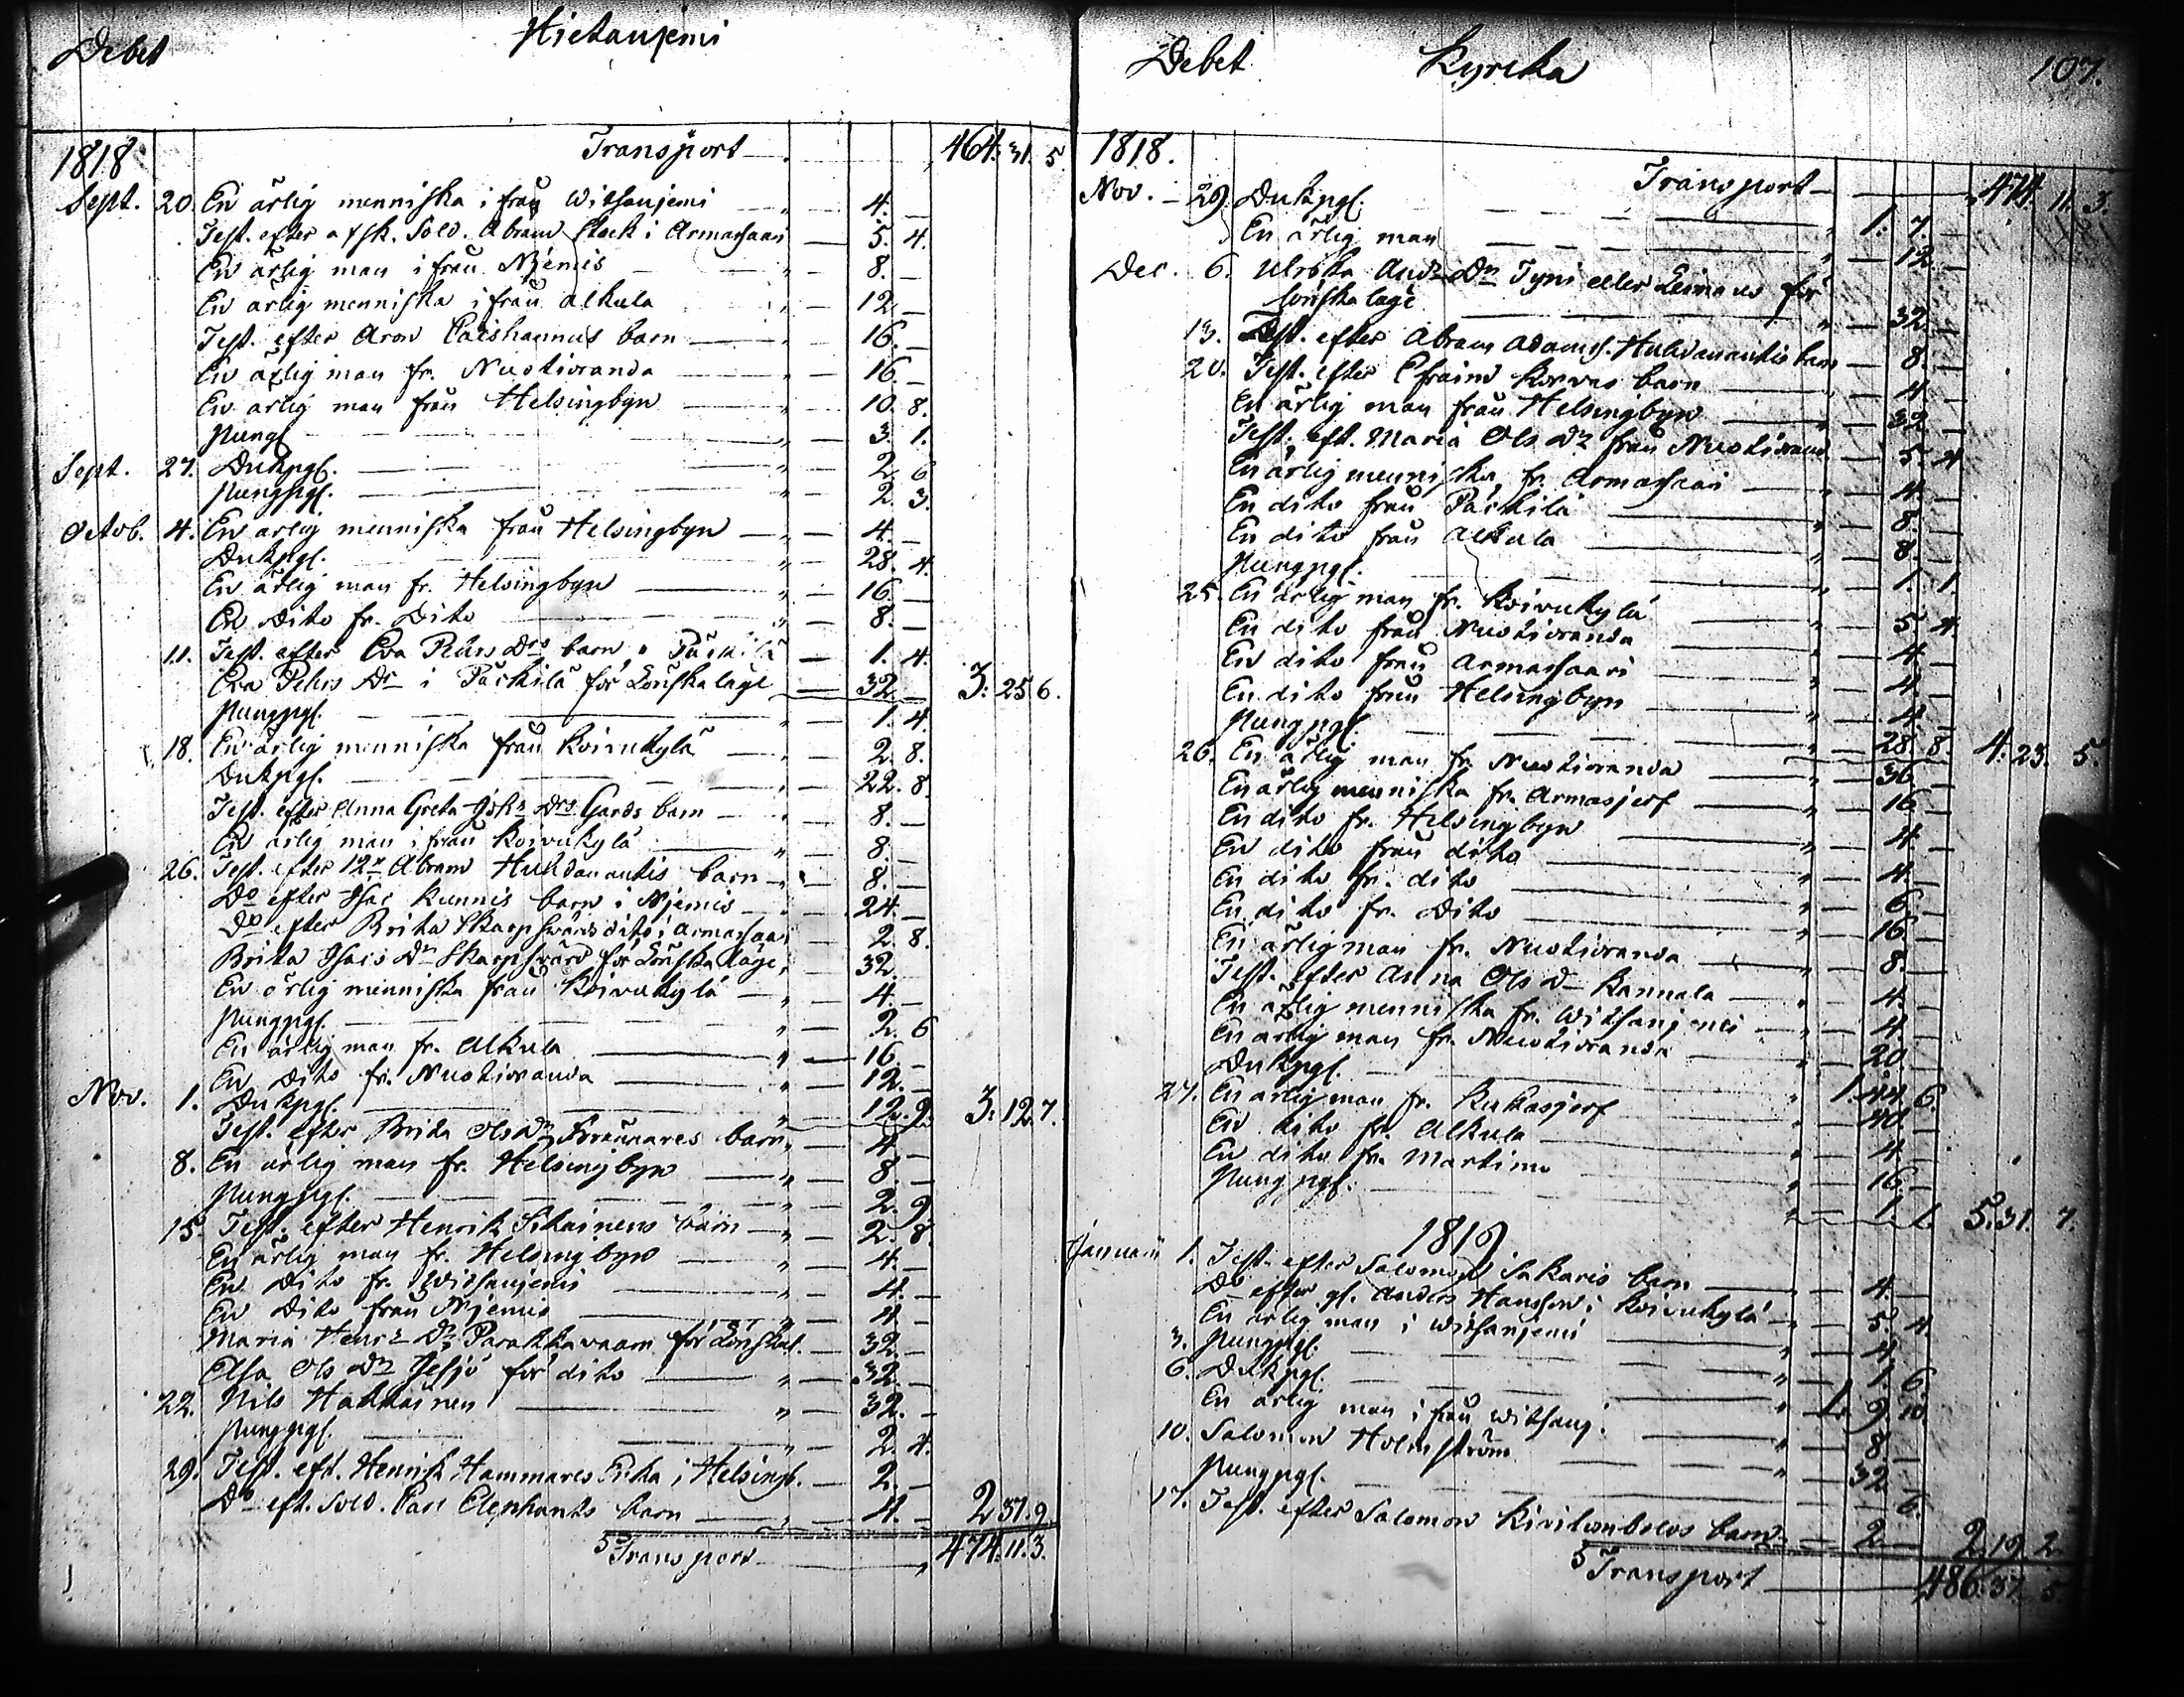 Debet Hietaniemi
1818 Transport 464. 31. 5
Sept. 20. En ärlig menniska ifrån Witsaniemi 4. —
Test. efter afsk. Sold. Abram Stock i Armassaari 5. 4.
En ärlig man ifrån Njemis 8. —
En ärlig menniska ifrån Alkula 12 —
Test. efter Aron barn 16. —
En ärlig man fr. Nuotioranda 16. —
En ärlig man från Helsingbyn 10. 8.
Pungp 3. 1.
Sept. 27. Dukpgr. 2. 6
Pungpgr. 2. 3.
Octob. 4. En ärlig menniska från Helsingbyn 4. —
Dukpgr. 28. 4.
En ärlig man fr. Helsingbyn 16. —
En Dito fr. Dito 8. —
11. Test. efter Eva Pehrs Drs barn i Päckilä 1. 4.
Eva Pehrs Dr i Päckilä för Lönskaläge 32 — 3: 25 6.
Pungpgr. 1. 4.
18. En ärlig menniska från Koivukylä 2. 8.
Dukpgr. 22. 8.
Test. efter Anna Greta Joh:s Drs Gards barn 8. —
En ärlig man ifrån Koivukylä 8. —
26. Test. efter Abram Huhdanantis barn 8. —
Do efter Isac Kunnis barn i Njemis 24. —
Do efter Brita Skarpsvärds dito i Armassaari 2. 8.
Brita Isacs Dr Skarpsvärd för Lönskaläge 32.
En ärlig menniska från Koivukylä 4. —
Pungpgr. 2. 6
En ärlig man fr. Alkula 16. —
En Dito fr. Nuotioranda 12. —
Nov. 1. Dukpgr. 12. 2. 3: 12 7.
Test. efter Brita Ols Dr barn 4. —
8. En ärlig man fr. Helsingbyn 8. —
Pungpgr. 2. 9
15. Test. efter Henrik Sikainens barn 2. 8.
En ärlig man fr. Helsingbyn 4. —
En Dito fr. Witsaniemi 4. —
En Dito från Njemis 4 —
Maria Henr:s Dr Parakkavaara för Lönskal. 32. —
Elsa Ols Dr Jessjö för dito 32. —
22. Nils Hakkainen 32. —
Pungpgr. 2. 4.
29. Test. eft. Henrik Hammares Enka i Helsingb. 2. —
Do eft. Sold. Carl Elephants barn 4. — 2 37. 9
Transport 474. 11. 3.
Debet Kyrcka 107.
1818. Transport 474 11. 3.
Nov. 29. Dukpgr. 1. 7. —
En ärlig man 12 —
Dec. 6. Ulrika And:s Dr Tyni eller Leinano för
lönskaläge 32 —
13. Test. efter Abram Adams. Huhdanantis barn 8. —
20. Test. efter Efraim Korvas barn 4 —
En ärlig man från Helsingbyn 32 —
Test. eft. Maria Ols Dr från Nuotiorand. 5. 4
En ärlig menniska fr. Armassaari 4. —
En dito från Päckilä 8. —
En dito från Alkula 8. —
Pungpgr. 1. 1.
25. En ärlig man fr. Koivukylä 5. 4
En dito från Nuotioranda 4. —
En dito från Armassaari 4. —
En dito från Helsingbyn 4. —
Pungpgr. 28. 8. 4. 23. 5.
26. En ärlig man fr. Nuotioranda 36 —
En ärlig menniska fr. Armasjerf 16 —
En dito fr. Helsingbyn 4. —
En dito från dito 4. —
En dito fr. dito 6. —
En dito fr. Dito 16. —
En ärlig man fr. Nuotioranda 8. —
Test. efter Anna Ols Dr Kannala 4. —
En ärlig menniska fr. Witsaniemi 4. —
En ärlig man fr. Nuotioranda 20 —
Dukpgr. 1. 44. 6.
27. En ärlig man fr. Kukasjerf 40. —
En dito fr. Alkula 4. —
En dito fr. Martimo 16 —
Pungpgr. 1. 1. 5. 31. 7.
1819
Januari 1. Test. efter Salomon Sakaris barn 4. —
Do efter gl. Anders Hansson i Koivukylä 5. 4.
En ärlig man i Witsaniemi 4 —
3. Pungpgr. 1. 6.
6. Dukpgr. 1. 9. 10
En ärlig man ifrån Witsanj. 8 —
10. Salomon Holmström 32 —
Pungpgr. 6.
17. Test. efter Salomon barn 2. — 2. 19. 2
Transport 486. 37. 5.